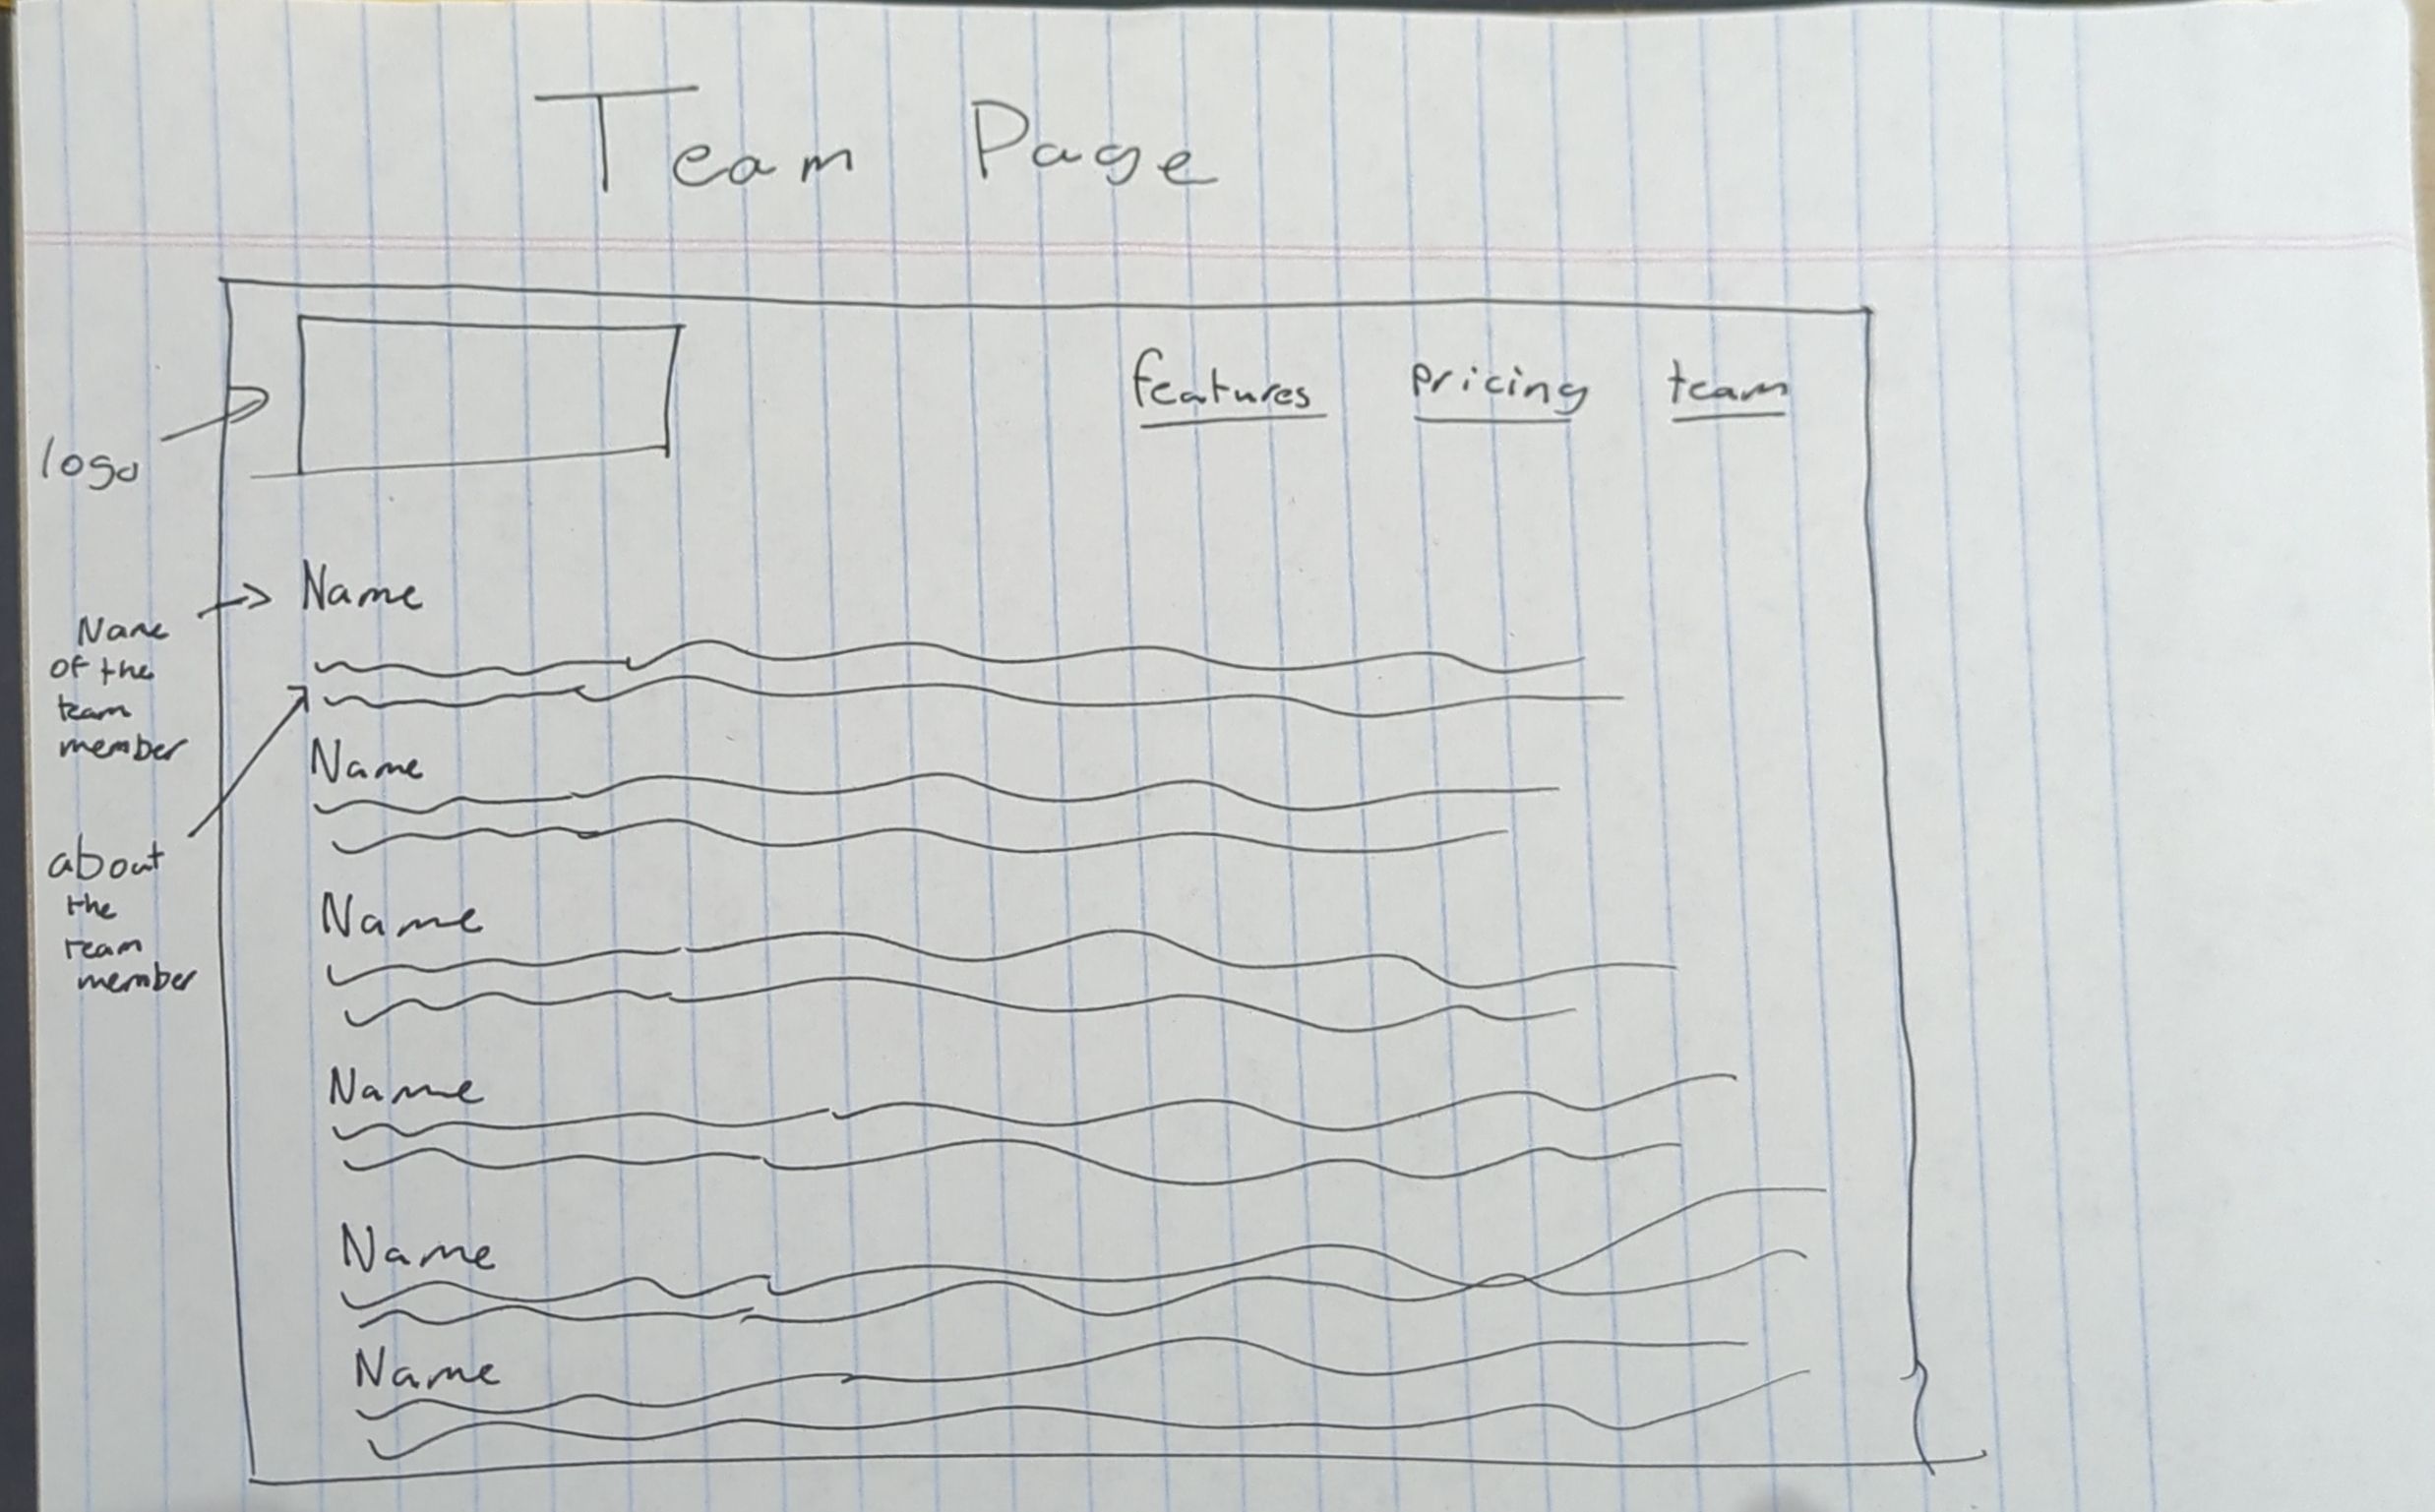 Team Page
features pricing team
logo
Name
Name
of the
team
member
Name
about
the
team
member
Name
Name
Name
Name